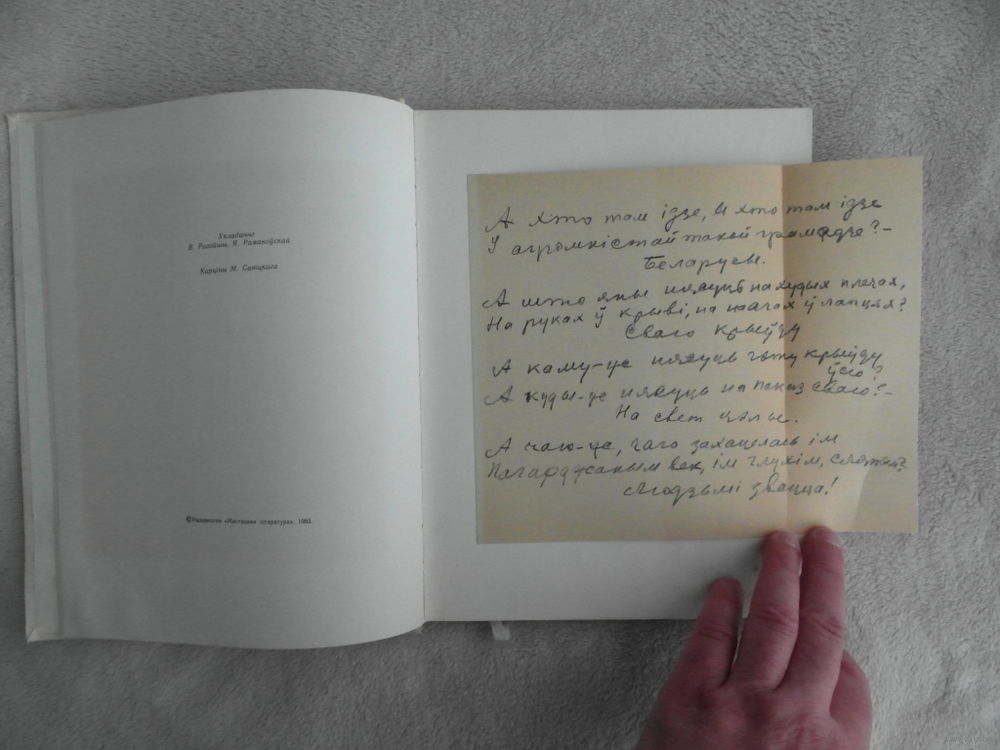 Укладанне
В. Рагойшы, Я. Рамановскай
Карціны М. Савіцкага
© Выдавецтва «Мастацкая літаратура», 1983.
А хто там ідзе, А хто там ідзе
У агромністай такой грамадзе?—
Беларусы.
А што яны нясуць на худых плячах,
На руках ў крыві, на нагах ў лапцях?
Сваю крыўду
А каму-це нясуць гэту крыўду
ўсю?
А куды-це нясуць на паказ сваю?—
На свет цэлы.
А чаго-це, чаго захацелась ім
Пагарджаным век, ім глухім, сляпым?
Людзьмі звацца!